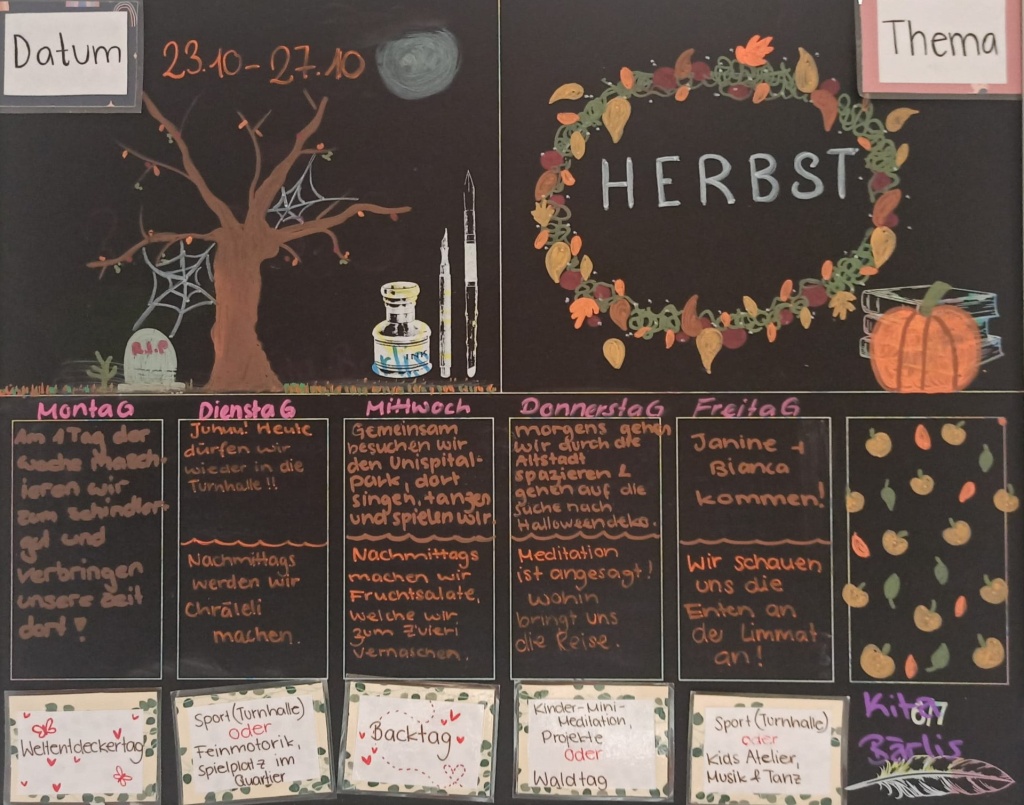 Datum
23.10-27.10
Thema
HERBST
R.I.P
INK
Montag
Am 1 Tag der
woche Masch-
ieren wir
zum Schindler-
gut und
verbringen
unsere Zeit
dort!
Dienstag
Juhuu! Heute
dürfen wir
wieder in die
Turnhalle!!
Nachmittags
werden wir
Chräleli
machen.
Mittwoch
Gemeinsam
besuchen wir
den Unispital-
park, dort
singen, tanzen
und spielen wir
Nachmittags
machen wir
Fruchtsalate,
welche wir
zum Z'vieri
vernaschen.
Donnerstag
morgens gehen
wir durch die
Altstadt
spazieren &
gehen auf die
suche nach
Halloweendeko.
Meditation
ist angesagt!
wohin
bringt uns
die Reise.
Freitag
Janine +
Bianca
kommen!
Wir schauen
uns die
Enten an
der Limmat
an!
Weltentdeckertag
Sport (Turnhalle)
oder
Feinmotorik,
Spielplatz im
Quartier
Backtag
Kinder-Mini-
Meditation,
Projekte
oder
Waldtag
Sport (Turnhalle)
oder
Kids Atelier,
Musik & Tanz
Kita
6/7
Bärlis